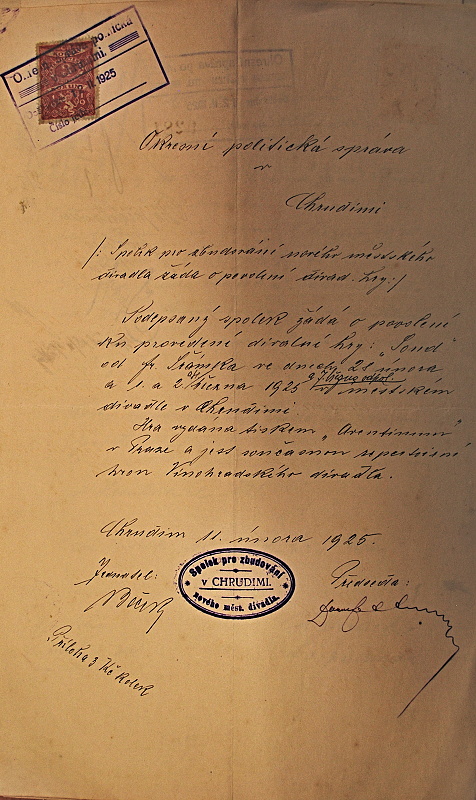 1925
Číslo
Okresní politická správa
v
Chrudimi
/: Spolek pro zbudování nového městského
divadla žádá o povolení divad. hry :/
Podepsaný spolek žádá o povolení
ku provedení divadelní hry: „Soud"
od fr. Šrámka ve dnech 28 února
a 1. a 2. března 1925 v městském
divadle v Chrudimi.
Hra vydána tiskem „Aventinum"
v Praze a jest současnou repertoirní
hrou Vinohradského divadla.
Chrudim 11. února 1925.
Jednatel:
Předseda:
Spolek pro zbudování
v CHRUDIMI.
nového měst. divadla.
Příloha 3 Kč kolek